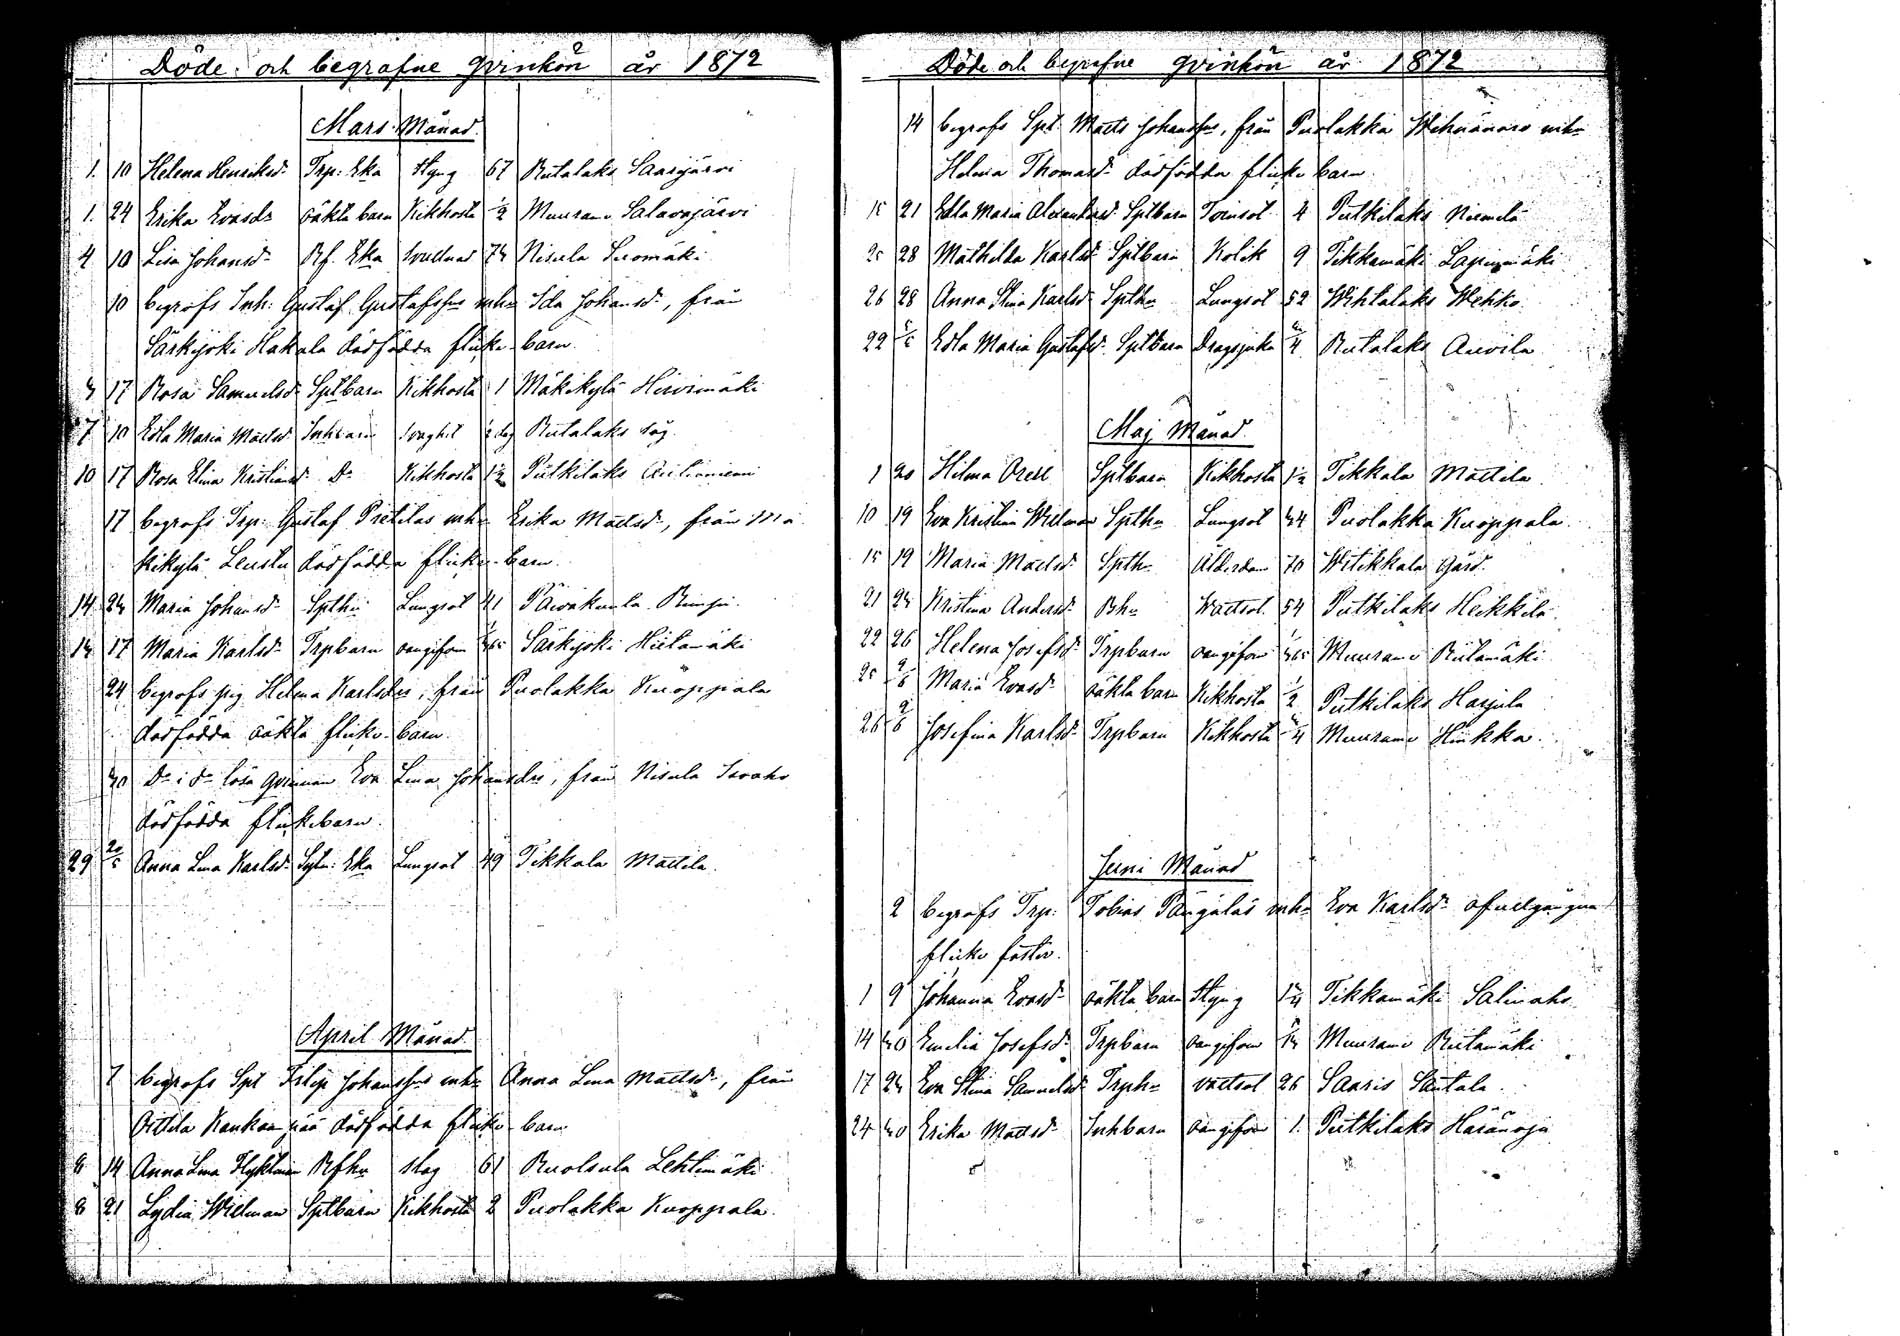 Döde och begrafne qvinkön år 1872
Mars Månad.
1. 10 Helena Henriksdr Trp: Eka Styng 67 Rutalaks Saarijärvi
1. 24 Erika Evasdr oäkta barn Kikhosta 1/2 Muurame Salavajärvi
4 10 Lisa Johansd. Rf. Eka 73 Nisula Suomäki
10 begrofs Inh: Gustaf Gustafssons Ida Johansd., från
Särkijoki Hakala dödfödda flicke-barn.
17 Rosa Samuelsd. Sptbarn Kikhosta 1 Mäkikylä Hirvimäki
7 10 Edla Maria Mattsd. Inhbarn svaghet 1/2 dag Rutalaks såg.
10 17 Rosa Elina Kristiansd. Do Kikhosta 1 1/2 Putkilaks
17 begrofs Trp: Gustaf Pietilas Erika Mattsd., från Mä
kikylä Leustu dödfödda flicke-barn.
14 Maria Johansd. Spth Lungsot 41 Päiväkunta
17 Maria Karlsd. Trpbarn oangifven Särkijoki Hietamäki
24 begrofs pig. Helena Karlsdrs, från Puolakka Kuoppala
dödfödda oäkta flicke-barn.
30 Do i do lösa qvinnan Eva Lena Johansdrs, från Nisula
dödfödda flickebarn.
29 Anna Lena Karlsd. Eka Lungsot 49 Tikkala Mattila.
April Månad
7 begrofs Spt Filip Johanssons Anna Lena Mattsd., från
Kankaanpää dödfödda flicke-barn.
8 14 Anna Lena slag 61 Ruolsula Lehtimäki
8 21 Lydia Wellman Sptbarn Kikhosta 2 Puolakka Kuoppala.
Döde och begrafne qvinkön år 1872
14 begrofs Spt. Matts Johanssons, från Puolakka
Helena Thomasd. dödfödda flicke barn.
15 21 Edla Maria Alexandersd. Sptbarn 4 Putkilaks Niemelä
25 28 Mathilda Karlsd. Sptbarn Kolik 9 Tikkamäki Lapinmäki
26 28 Anna Stina Karlsd. Lungsot 52 Wihtalaks Wekko.
22 5/5 Edla Maria Gustafsd. Sptbarn Dragsjuka 3/4 Rutalaks Auvila
Maj Månad.
1 20 Hilma Sptbarn Kikhosta 1 1/2 Tikkala Mattila
10 19 Eva Kristina Wellman Lungsot 34 Puolakka Kuoppala.
15 19 Maria Mattsd. Ålderdom 70 Witikkala Gård.
21 Kristina Andersd. Wattsot. 54 Putkilaks Heikkilä
22 26 Helena Josefsd. Trpbarn oangifven Muurame Riitamäki
25 2/6 Maria Evasd. oäkta barn Kikhosta 1/2 Putkilaks Harjula
26 2/6 Josefina Karlsd. Trpbarn Kikhosta 3/4 Muurame Hinkka.
Juni Månad
2 begrofs Trp: Tobias Eva Karlsd. afledgångna
flicke foster.
1 9 Johanna Evasd. oäkta barn Styng Tikkamäki
14 30 Emilia Josefsd. Trpbarn oangifven Muurame Riitamäki
17 Eva Stina Samuelsd. vattsot 26 Saaris Santala.
24 30 Erika Mattsd. Inhbarn oangifven 1. Putkilaks Häränoja